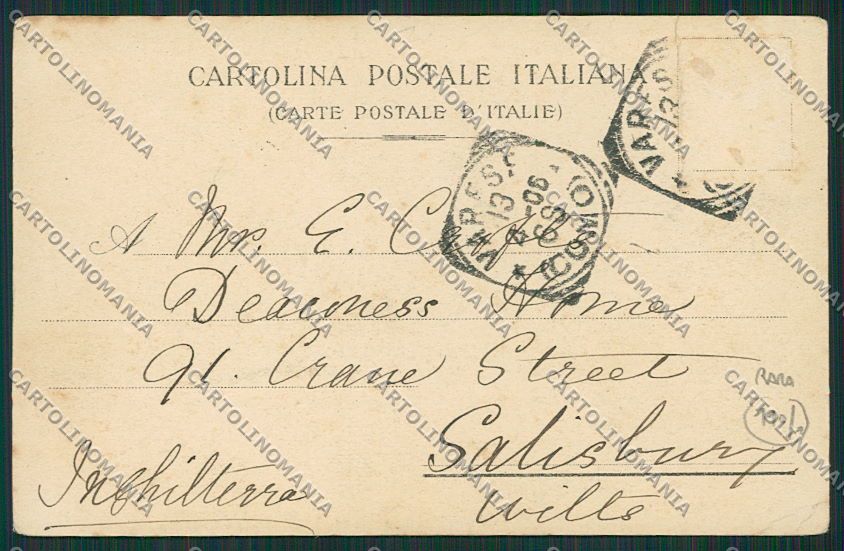 CARTOLINA POSTALE ITALIANA
(CARTE POSTALE D'ITALIE)
VARES
VARESE
13
06
(COMO)
A Mr. E.
Deaconess Home
91. Crane Street
RARA
Salisbury
Wilts
Inghilterra
CARTOLINOMANIA